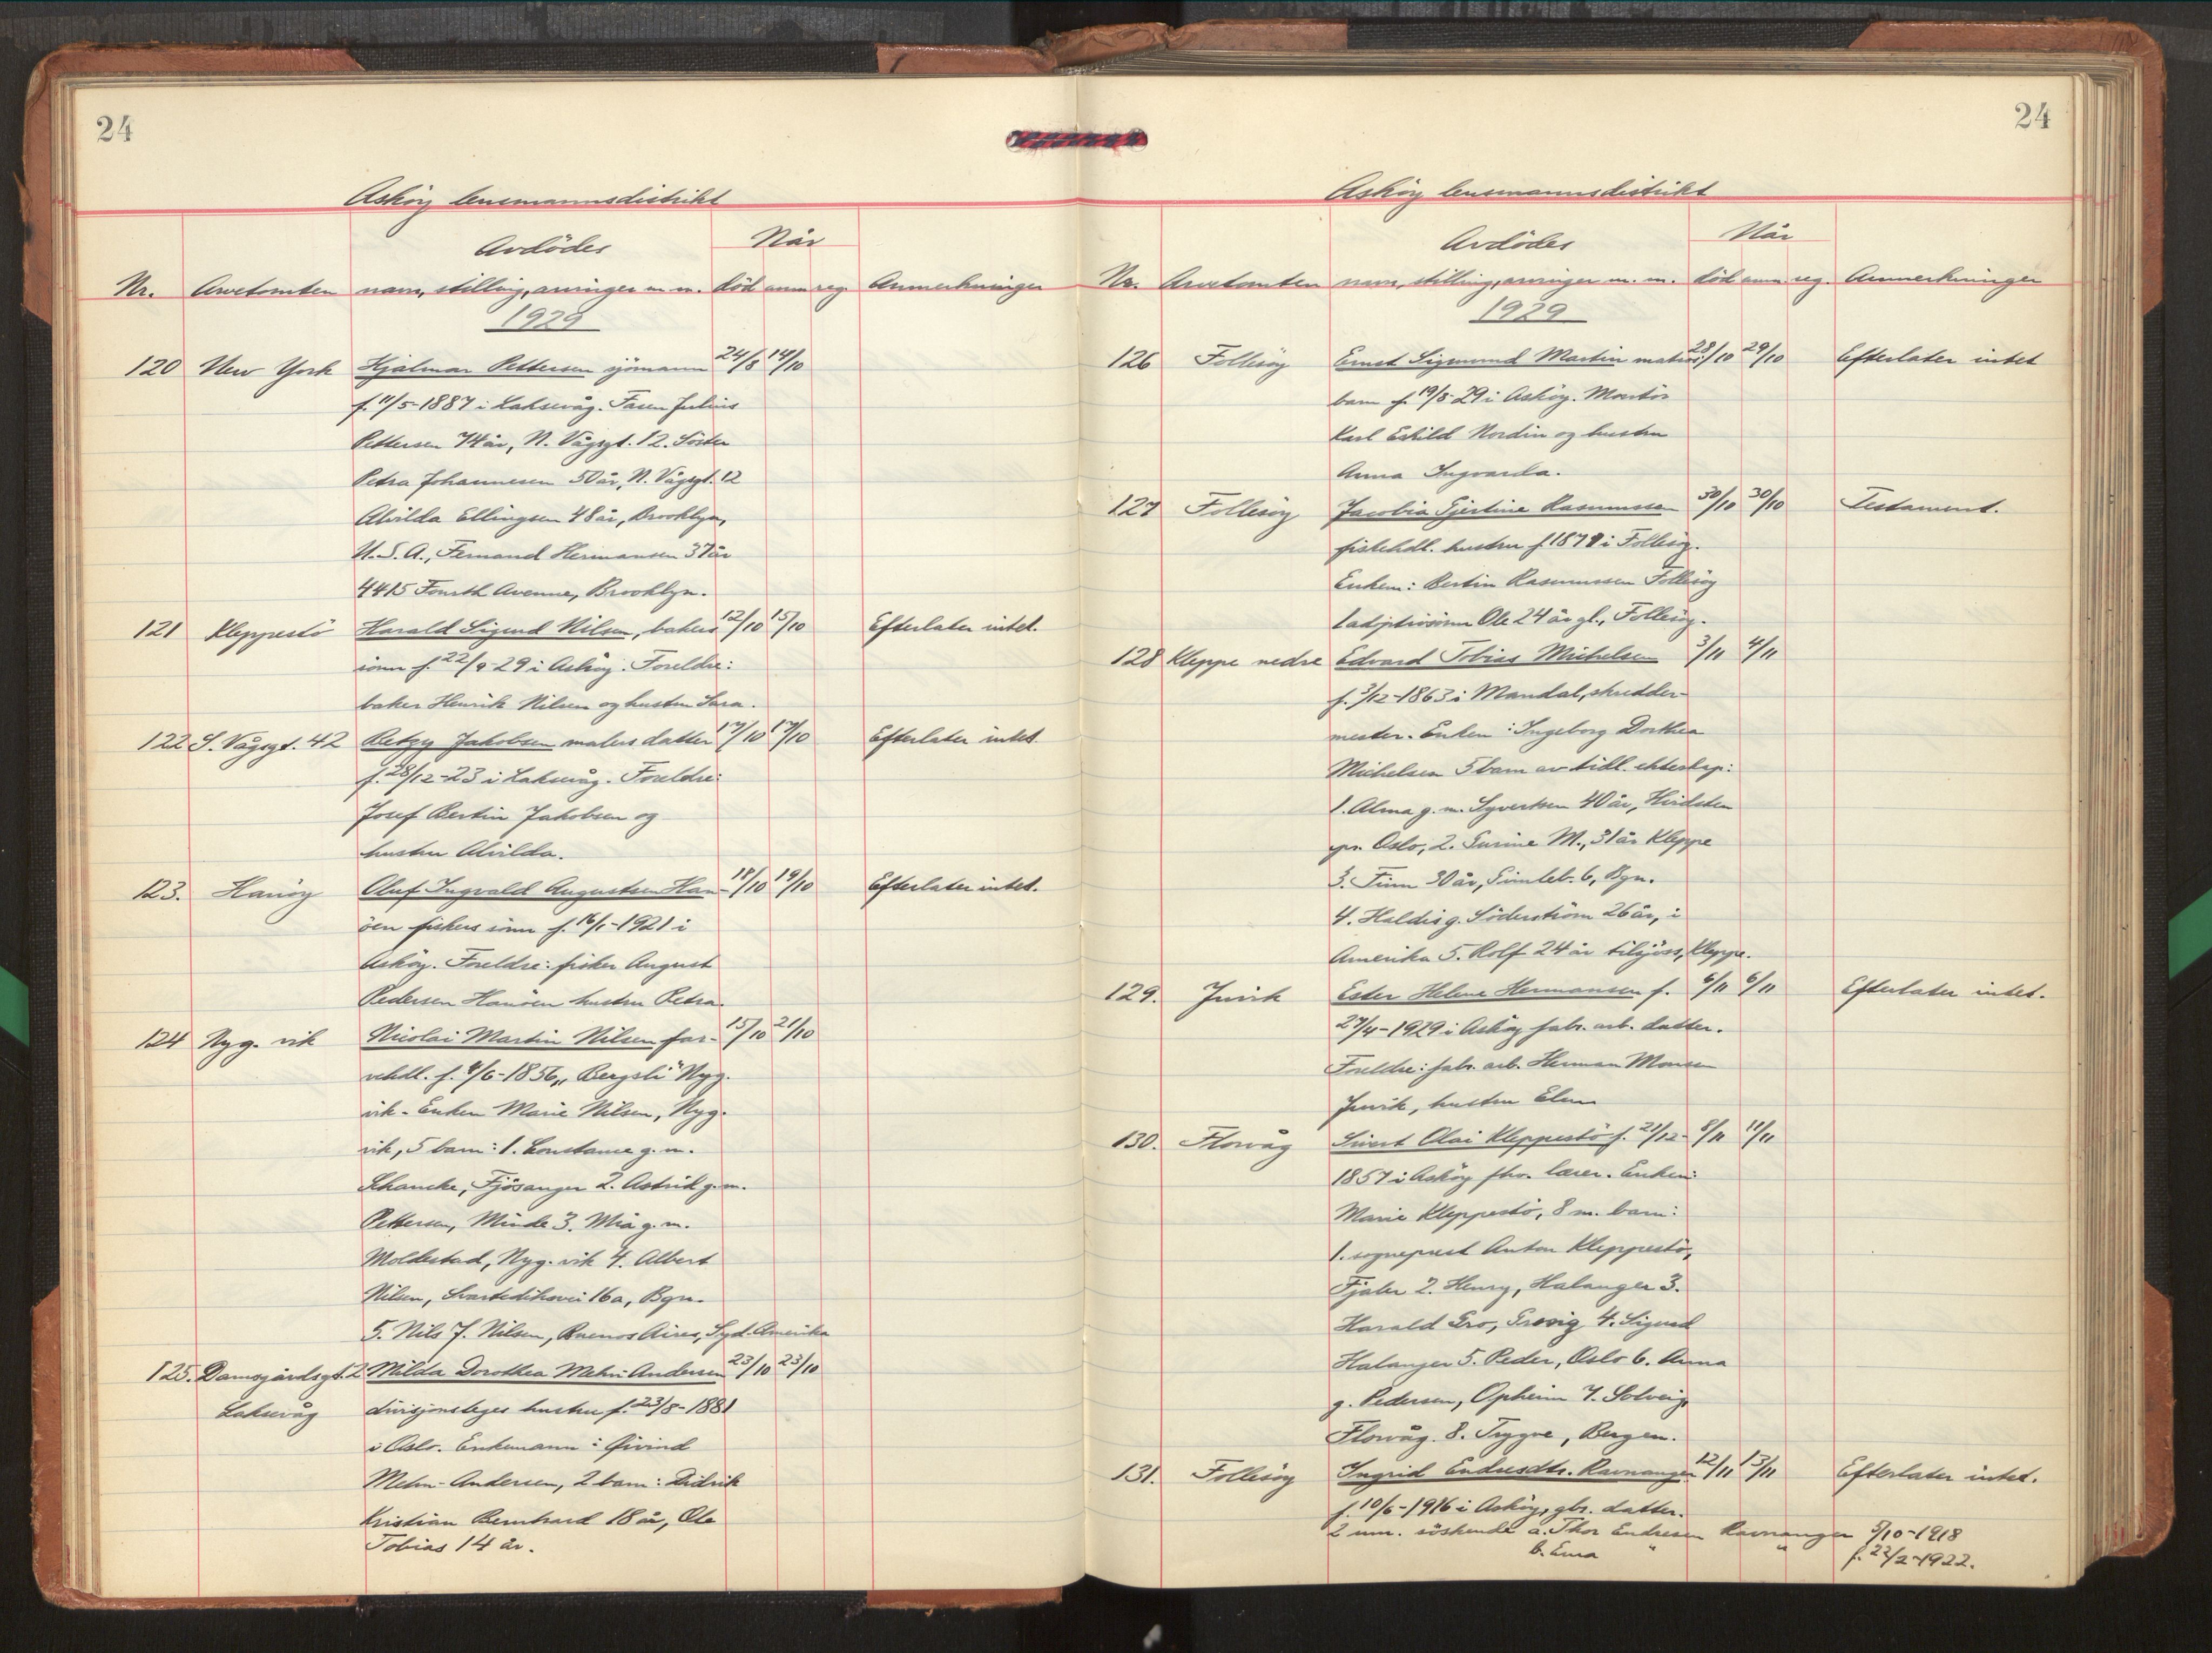 24
Askøy lensmannsdistrikt
Avdödes
Når
Nr. Arvetomten navn, stilling, arvinger m. m. död anm reg. Anmerkninger
1929
120 New York Hjalmar Pettersen sjömann 24/8 14/10
f. 11/5-1887 i Laksevåg. Faren Julius
Pettersen 74 år, N. Vågsgt. 12. Söster
Petra Johannesen 50 år, N. Vågsgt. 12
Alvilda Ellingsen 48 år, Brooklyn,
U.S.A., Fernand Hermansen 37 år
4415 Fourth Avenue, Brooklyn.
121 Kleppestö Harald Sigurd Nilsen, bakers 12/10 15/10 Efterlater intet.
sönn f. 22/9-29 i Asköy. Foreldre:
baker Henrik Nilsen og hustru Sara.
122 S. Vågsgt. 42 Betzy Jakobsen malers datter 17/10 17/10 Efterlater intet.
f. 28/12-23 i Laksevåg. Foreldre:
Josef Bertin Jakobsen og
hustru Alvilda.
123. Hanöy Oluf Ingvald Augustsen Han- 18/10 19/10 Efterlater intet.
öen fiskers sönn f. 16/1-1921 i
Asköy. Foreldre: fisker August
Pedersen Hanöen hustru Petra.
124 Nyg. vik Nicolai Martin Nilsen far- 15/10 21/10
vehdl. f. 4/6-1856, "Bergsli" Nyg.
vik - Enken Marie Nilsen, Nyg.
vik, 5 barn: 1. Constance g. m.
Schancke, Fjösanger 2. Astrid g. m.
Pettersen, Minde 3. Mia g. m.
Moldestad, Nyg. vik 4. Albert
Nilsen, Svartediksvei 16a, Bgn.
5. Nils J. Nilsen, Buenos Aires, Syd. Amerika
125. Damsgårdsgt. 2 Milda Dorothea Mehn-Andersen 23/10 23/10
Laksevåg divisjonsleges hustru f. 23/8-1881
i Oslo. Enkemann: Øivind
Mehn-Andersen, 2 barn: Didrik
Kristian Bernhard 18 år, Ole
Tobias 14 år.
24
Asköy lensmannsdistrikt
Avdödes
Når
Nr. Arvetomten navn, stilling, arvinger m. m. död anm. reg. Anmerkninger
1929
126 Follesöy Ernst Sigmund Martin 28/10 29/10 Efterlater intet
barn f. 19/8-29 i Asköy. Montör
Karl Eskild Nordin og hustru
Anna Ingvarda.
127 Follesöy Jacobia Gjertine Rasmussen 30/10 30/10 Testament.
fiskehdl. hustru f. 1871 i Follesöy.
Enkem: Bertin Rasmussen Follesöy
1 adoptivsönn Ole 24 år gl., Follesöy.
128 Kleppe nedre Edvard Tobias Michelsen 3/11 4/11
f. 3/12-1863 i Mandal, skredder-
mester. Enken: Ingeborg Dorthea
Michelsen 5 barn av tidl. ekteskap:
1. Alma g. m. Syvertsen 40 år,
pr. Oslo, 2. M., 31 år Kleppe
3. Finn 30 år, 6, Bgn.
4. Haldis g. Söderström 26 år, i
Amerika 5. Rolf 24 år tilsjöss, Kleppe.
129. Juvik Ester Helene Hermansen f. 6/11 6/11 Efterlater intet.
27/4-1929 i Asköy fabr. arb. datter.
Foreldre: fabr. arb. Herman Monsen
Juvik, hustru
130. Florvåg Sivert Olai Kleppestö f. 21/12- 8/11 11/11
1857 i Asköy fhv. lærer. Enken:
Marie Kleppestö, 8 m. barn:
1. sogneprest Anton Kleppestö,
Fjaler 2. Henry, Halanger 3.
Harald Gro, 4. Sigurd
Halanger 5. Peder, Oslo 6. Anna
g. Pedersen, Opheim 7. Solveig,
Florvåg. 8. Trygve, Bergen.
131. Follesöy Ingrid Endresdtr. Ravnanger 12/11 13/11 Efterlater intet.
f. 10/6-1916 i Asköy, gbr. datter.
2 um. söskende a. Thor Endresen Ravnanger 5/10-1918
b. Erna " " f. 22/2-1922.